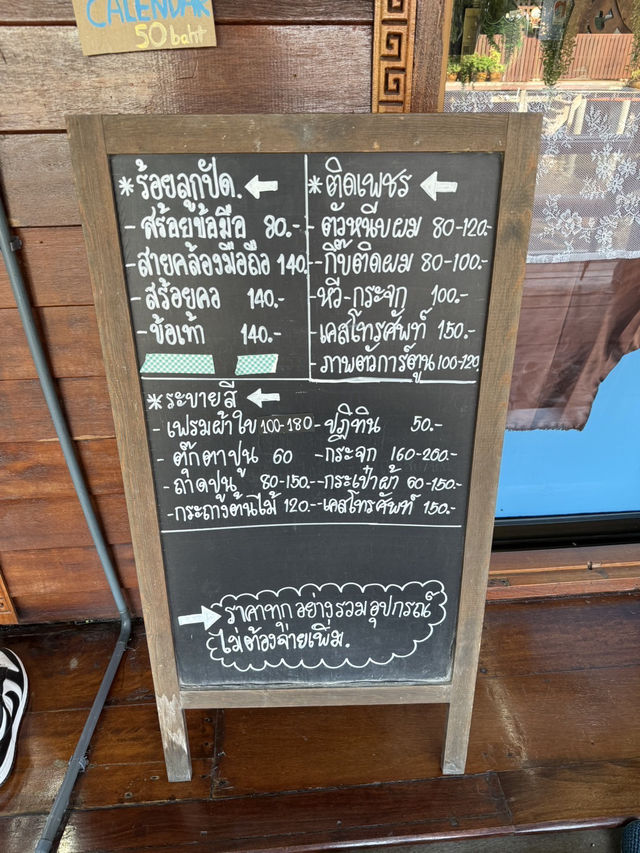 CALENDAR
50 baht
*ร้อยลูกปัด.
- สร้อยข้อมือ 80.-
- สายคล้องมือถือ 140.-
- สร้อยคอ 140.-
- ข้อเท้า 140.-
*ติดเพชร
- ตัวหนีบผม 80-120.-
- กิ๊บติดผม 80-100.-
- หวี-กระจก 100.-
- เคสโทรศัพท์ 150.-
- ภาพตัวการ์ตูน 100-120.
*ระบายสี
- เฟรมผ้าใบ 100-180
- ตุ๊กตาปูน 60
- ถาดปูน 80-150.-
- กระถางต้นไม้ 120.-
- ปฏิทิน 50.-
- กระจก 160-200.-
- กระเป๋าผ้า 60-150.-
- เคสโทรศัพท์ 150.-
ราคาทุกอย่างรวมอุปกรณ์
ไม่ต้องจ่ายเพิ่ม.